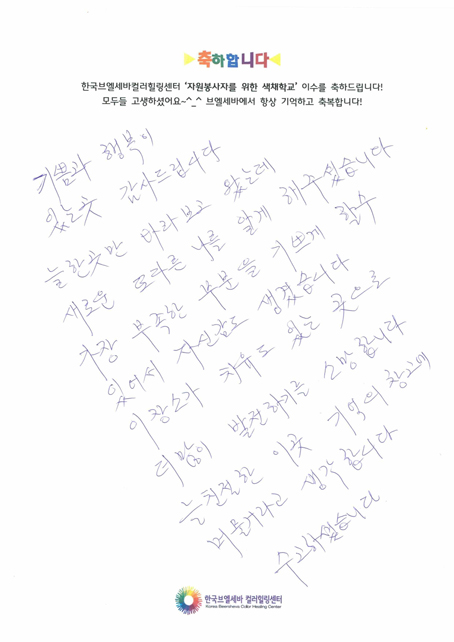 축하합니다
한국브엘세바컬러힐링센터 '자원봉사자를 위한 색채학교' 이수를 축하드립니다!
모두들 고생하셨어요~^_^ 브엘세바에서 항상 기억하고 축복합니다!
기쁨과 행복이
있는곳 감사드립니다
늘 한곳만 바라보고 왔는데
새로운 또다른 나를 알게 해주셨습니다
가장 부족한 부분을 기쁘게 할수
있어서 자신감도 생겼습니다
이 장소가 치유도 있는 곳으로
더 많이 발전하기를 소망합니다
늘 친절한 이곳 기억의 창고에
머물거라고 생각합니다
수고하셨습니다
한국브엘세바 컬러힐링센터
Korea Beersheva Color Healing Center